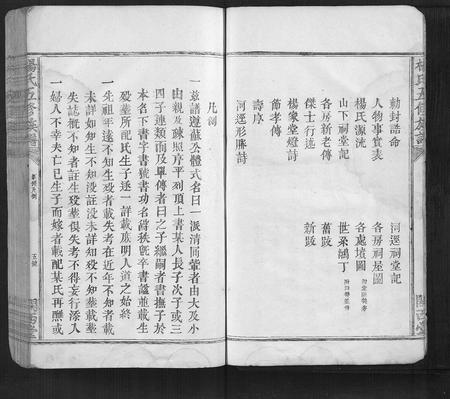 楊氏五修族譜
勅封誥命
人物事實表
楊氏源流
山下祠堂記
各房新老傳
傑士行述
楊家堂燈詩
節孝傳
壽序
河逕形勝詩
河逕祠堂記
各房祠屋圖
各處墳圖
世系總丁
舊跋
新跋
關西堂
楊氏五修族譜
凡例
五號
關西堂
凡例
一茲譜遵蘇公體式名曰一派清同輩者由大及小
由親及疎照序平列頂上書某人長子次子或三
四子連類而及單傳者曰之子繼嗣者書撫子於
本名下書字書號書功名爵秩氈卒書諡並載生
歿葬所配氏生子逐一詳載庶明人道之始終
一先祖年遠不知生歿者載失考在近年不知者載
未詳如知生不知歿註歿未詳知歿不知葬載葬
失誌概不知者註生歿葬俱失考不得妄行添入
一婦人不幸夫亡已生子而嫁者載配某氏再醮或